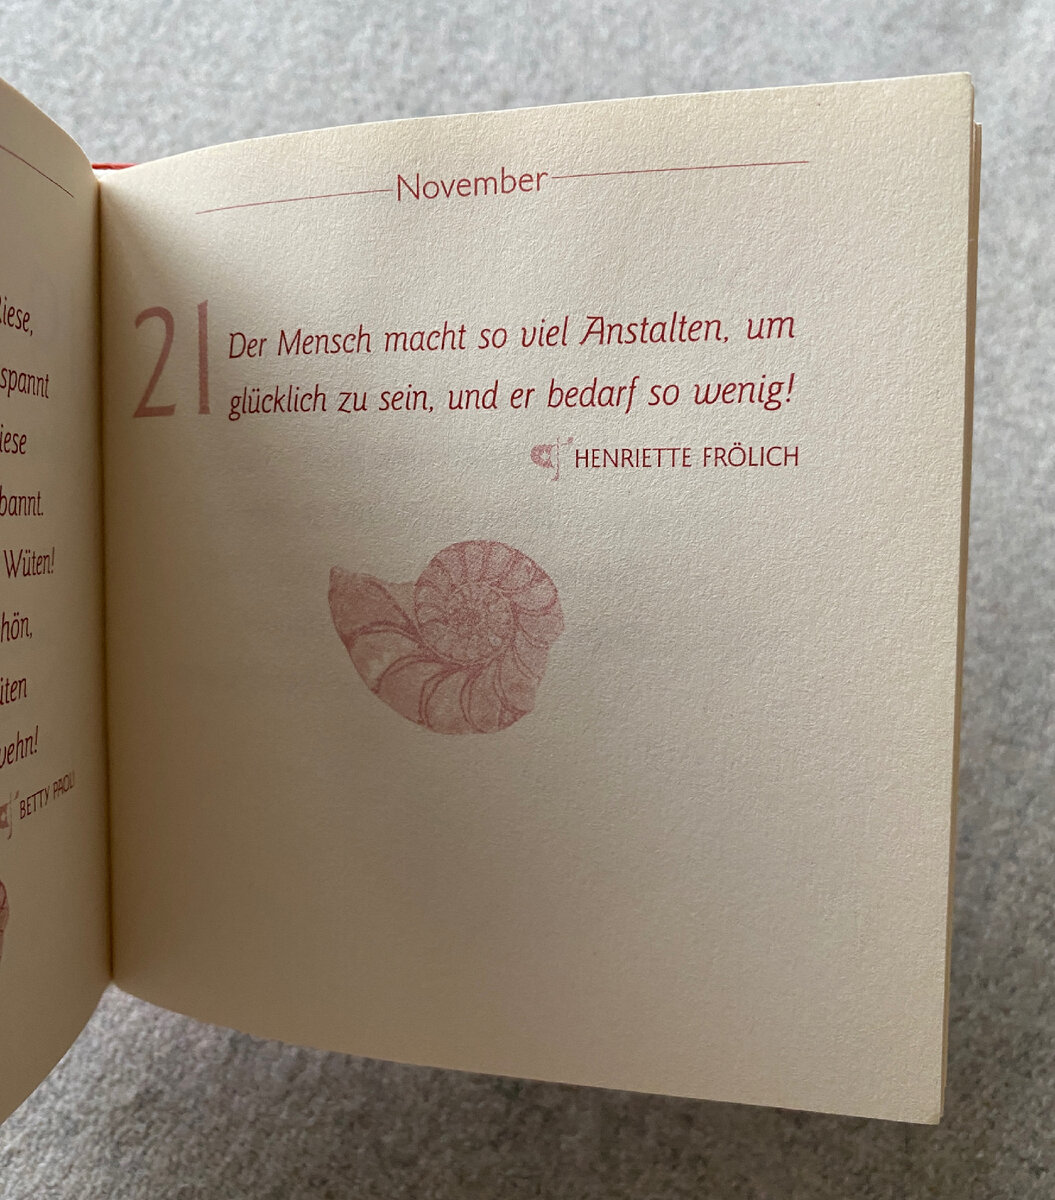 spannt
bannt.
Wüten!
wehn!
BETTY PAOLI
November
21
Der Mensch macht so viel Anstalten, um
glücklich zu sein, und er bedarf so wenig!
HENRIETTE FRÖLICH